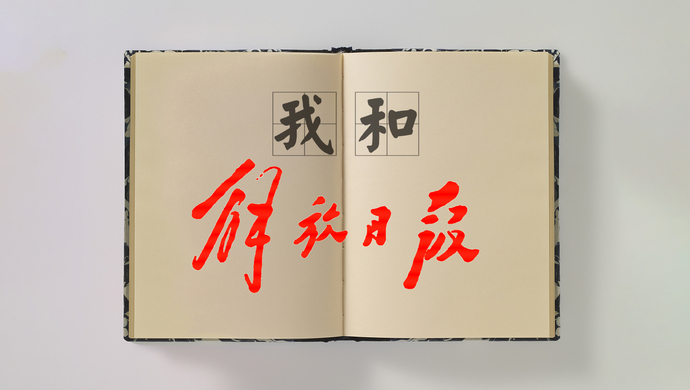 我和
解放日报